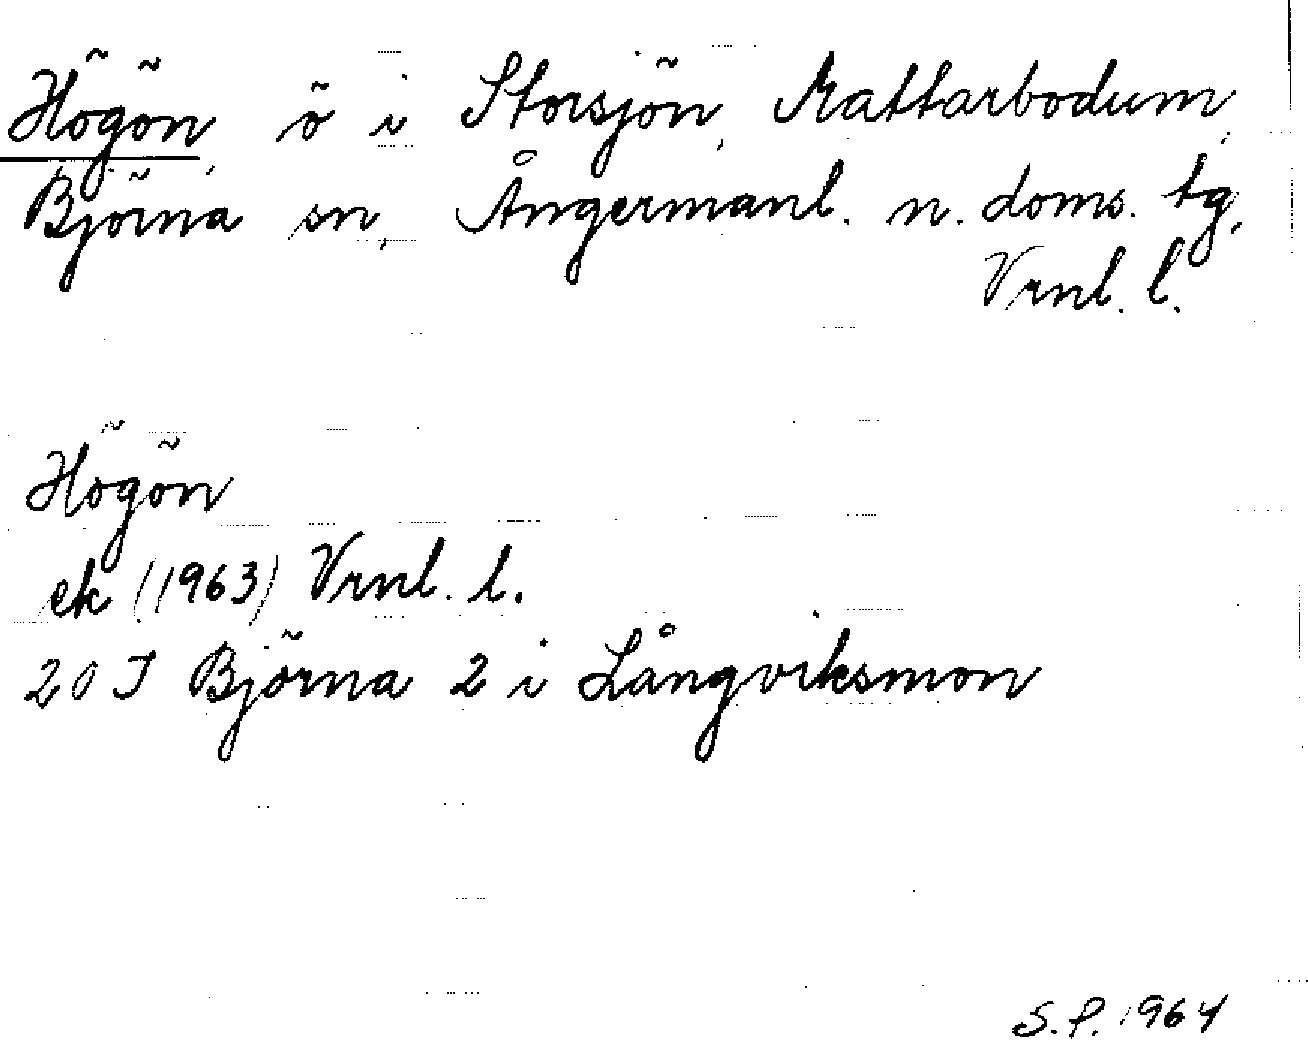 Högön, ö i Storsjön, Mattarbodum,
Björna sn, Ångermanl. n. doms. tg,
Vrnl. l.
Högön
ek (1963) Vrnl. l.
20 J Björna 2 i Långviksmon
S.P. 1964